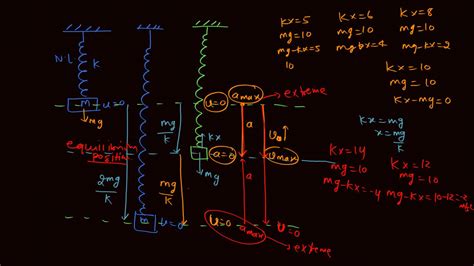 N.L
K
m
u=0
mg
equilibrium
position
2mg
K
m
v=0
mg
K
mg
K
Kx
mg
v=0
amax
extreme
a
v↑
a=0
vmax
a
v=0
amax
v=0
extreme
Kx=5
mg=10
mg-kx=5
10
Kx=6
mg=10
mg-kx=4
Kx=8
mg=10
mg-kx=2
Kx=10
mg=10
Kx-mg=0
Kx=mg
x=mg
K
Kx=14
mg=10
mg-kx=-4
Kx=12
mg=10
mg-kx=10-12=-2